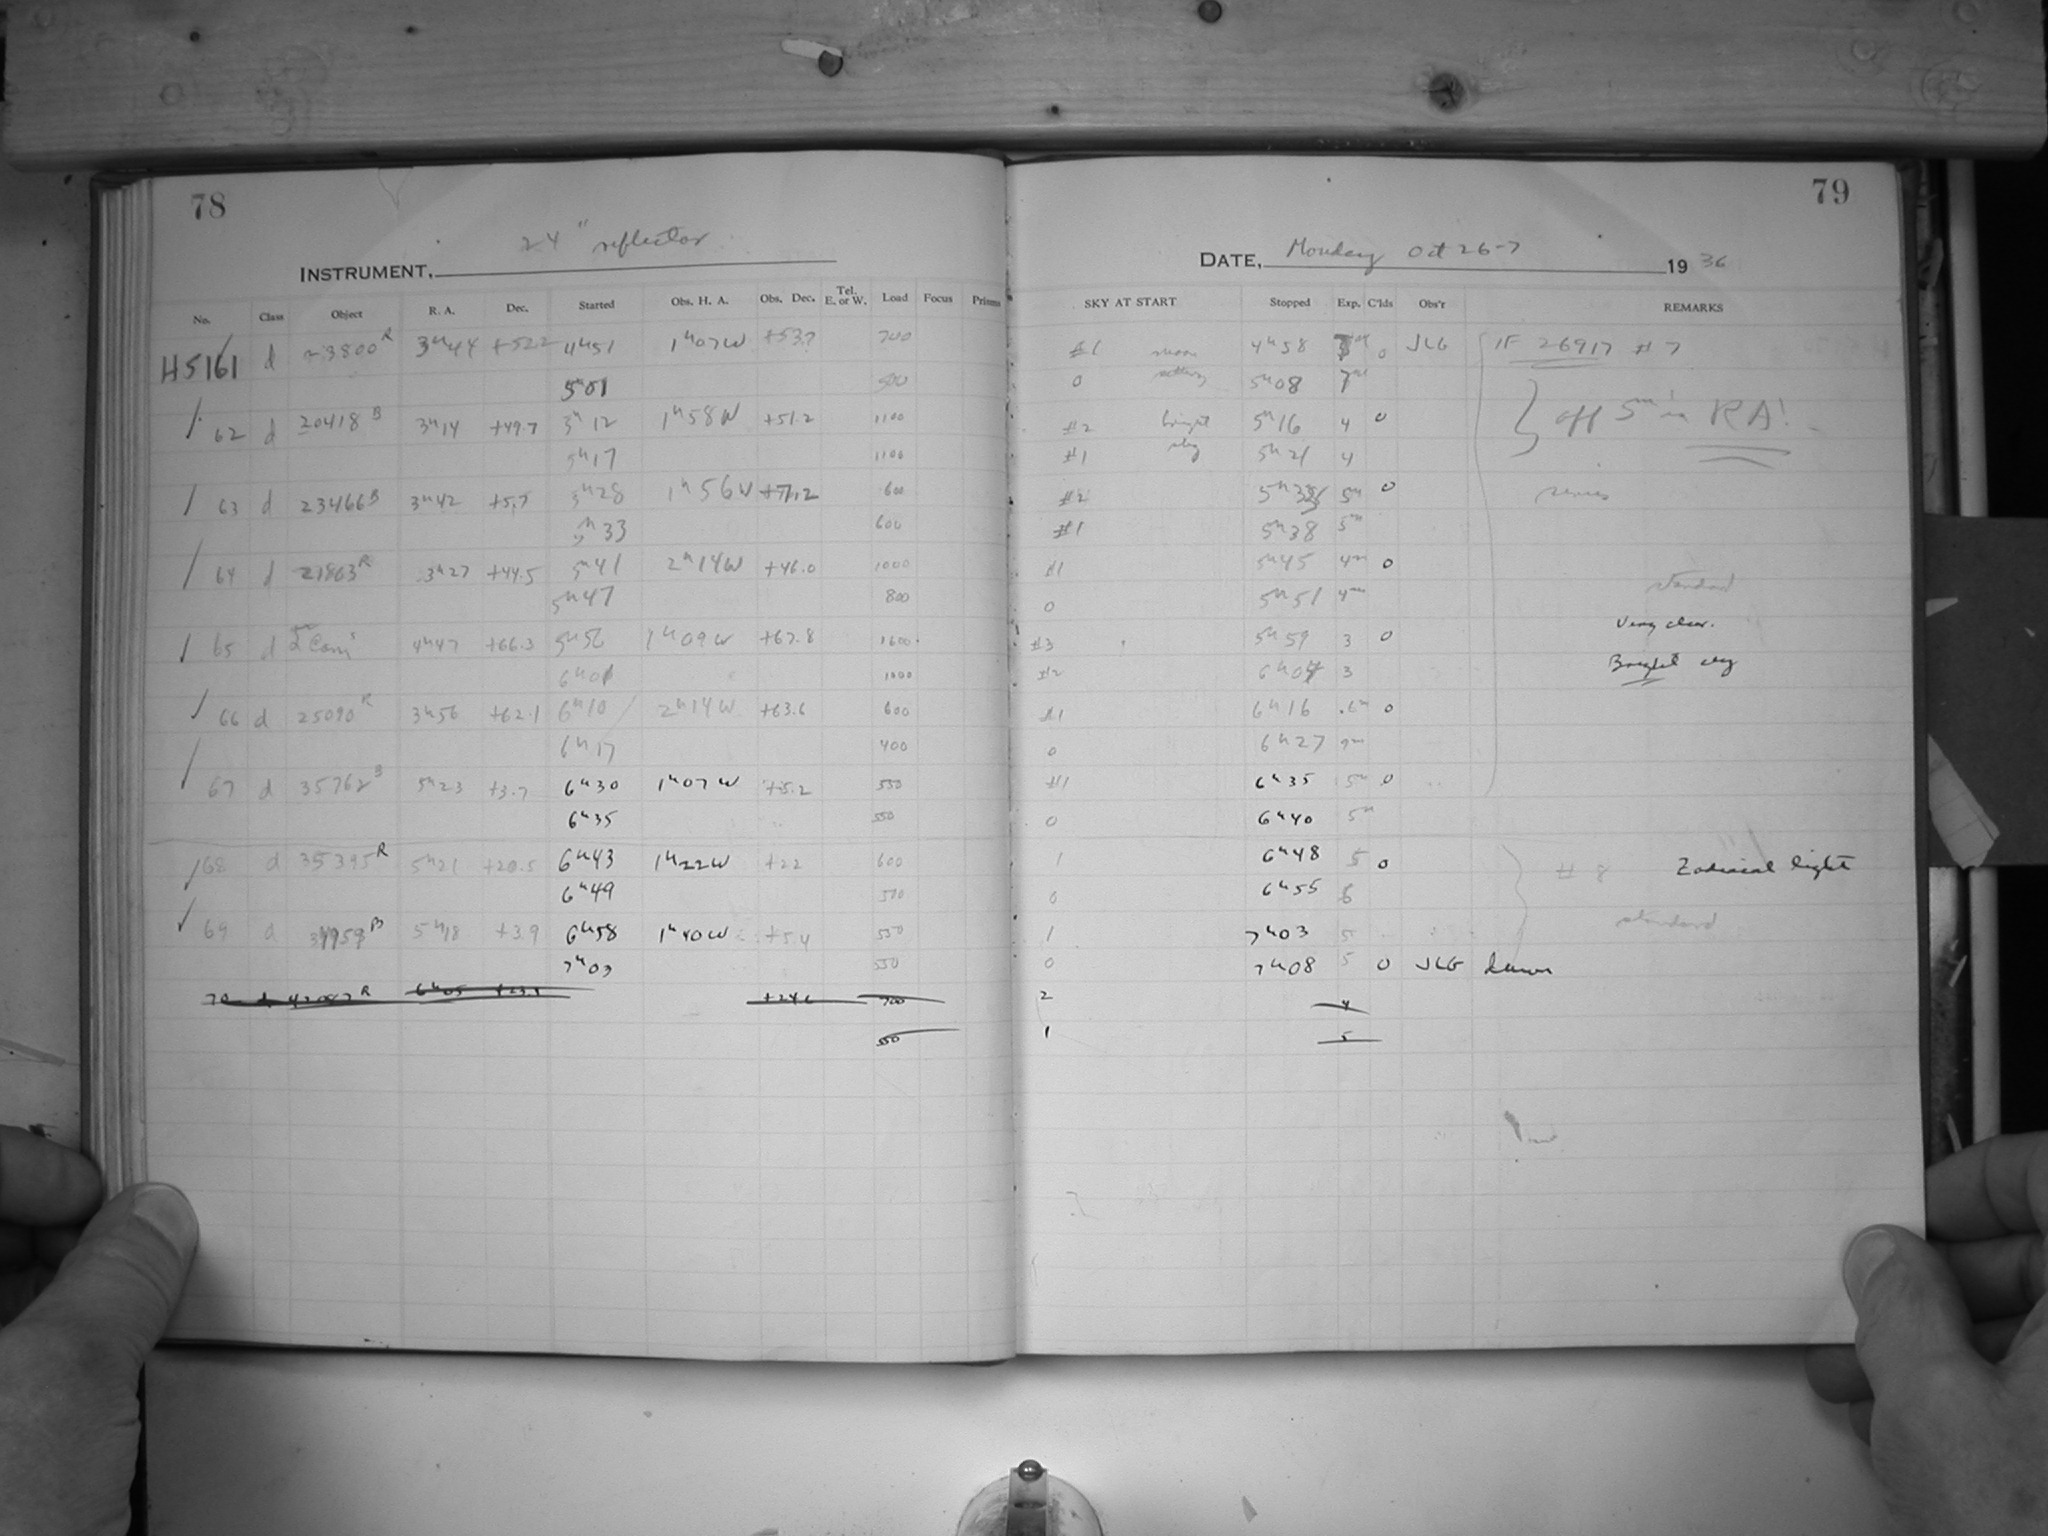 78
24" reflector
INSTRUMENT,
No. Class Object R. A. Dec. Started Obs. H. A. Obs. Dec. Tel. E. or W. Load Focus Prisms
H5161 d 23800 R 3h44 +52.2 4h51 1h07W +53.7 700
5h01 500
62 d 20418 B 3h14 +49.7 3h12 1h58W +51.2 1100
5h17 1100
63 d 23466 B 3h42 +5.7 3h28 1h56W +7.2 600
5h33 600
64 d 21863 R 3h27 +44.5 5h41 2h14W +46.0 1000
5h47 800
65 d 4h47 +66.3 5h56 1h09W +67.8 1600
6h01 1000
66 d 25090 R 3h56 +62.1 6h10 2h14W +63.6 600
6h17 400
67 d 35762 B 5h23 +3.7 6h30 1h07W +5.2 550
6h35 550
68 d 35395 R 5h21 +20.5 6h43 1h22W +22 600
6h49 500
69 d 34959 B 5h18 +3.9 6h58 1h40W +5.4 550
7h03 550
70 d 42087 R 6h05 +23.1 +24.6 700
550
79
DATE, Monday Oct 26-7 1936
SKY AT START Stopped Exp. C'lds Obs'r REMARKS
#1 moon 4h58 0 JLG IF 26917 #7
0 setting 5h08 7m
#2 bright 5h16 4 0 } off 5m in RA!
#1 sky 5h21 4
#2 5m 0 series
#1 5h38 5m
#1 5h45 4m 0 standard
0 5h51 4m
Very clear.
#3 5h59 3 0
#2 6h04 3 Bright sky
#1 6h16 6m 0
0 6h27 9m
#1 6h35 5m 0
0 6h40 5m
1 6h48 5 0 #8 Zodiacal light
0 6h55 6
1 7h03 5 standard
0 7h08 5 0 JLG dawn
2 4
1 5